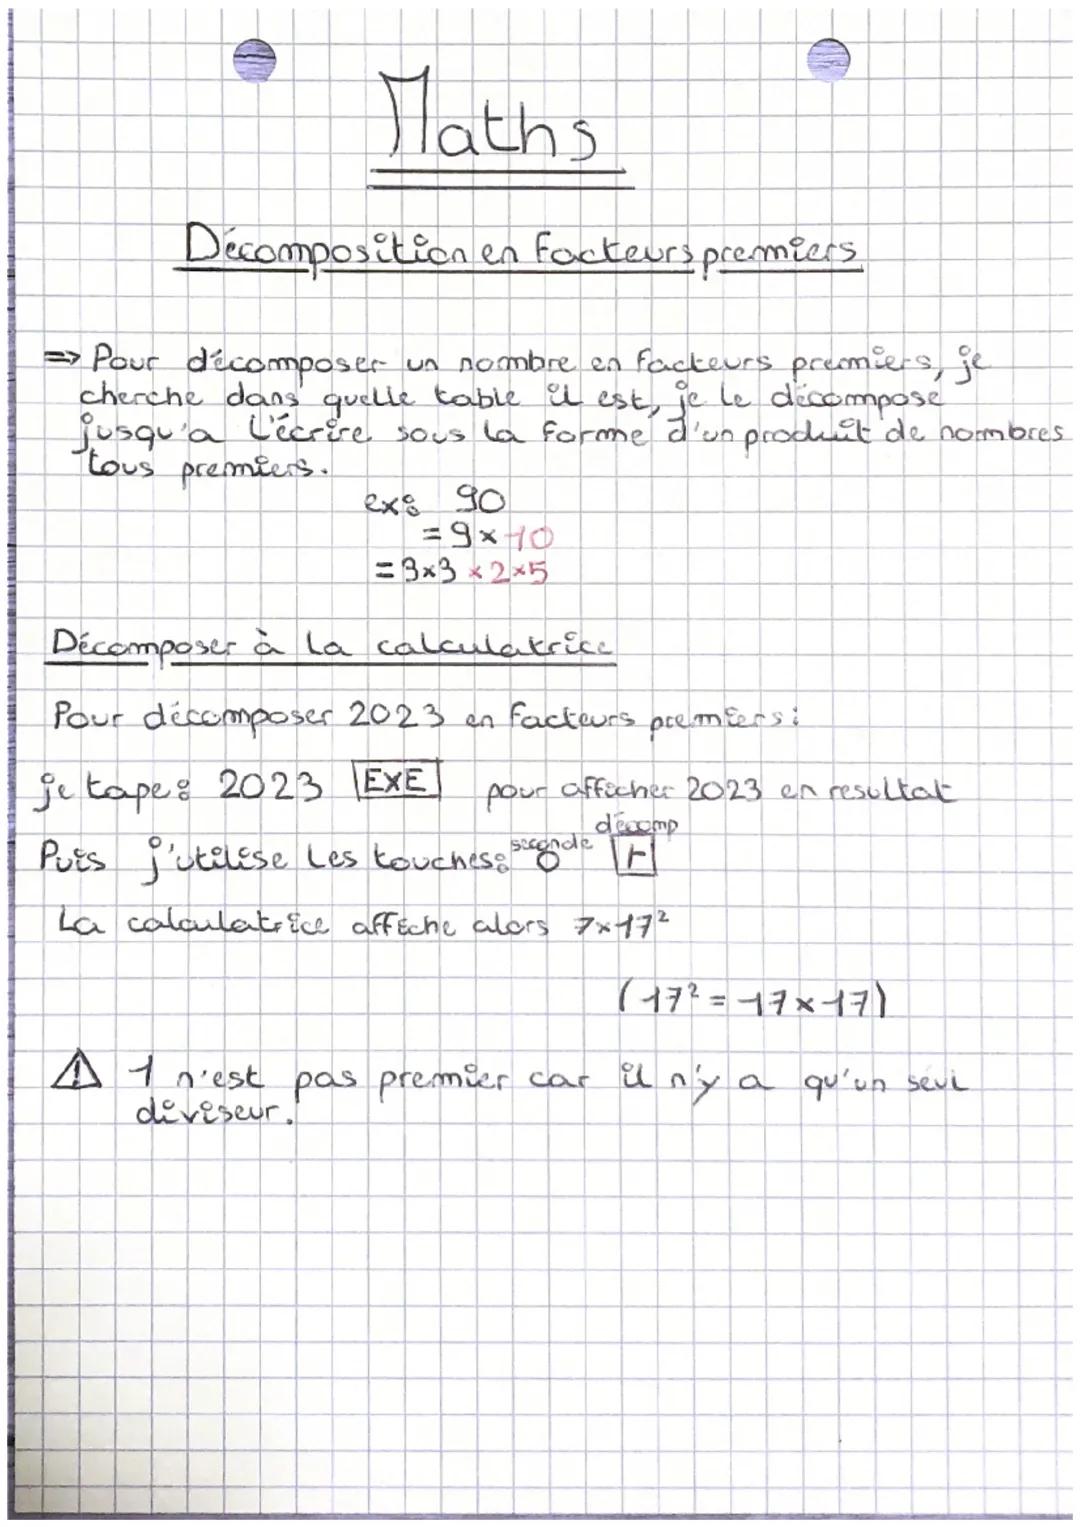 Maths
Décomposition en facteurs premiers
=> Pour décomposer un nombre en facteurs premiers, je
cherche dans quelle table il est, je le décompose
jusqu'a l'écrire sous la forme d'un produit de nombres
tous premiers.
ex: 90
= 9 × 10
= 3×3 × 2×5
Décomposer à la calculatrice
Pour décomposer 2023 en facteurs premiers:
je tape: 2023 EXE pour afficher 2023 en resultat
décomp
Puis j'utilise les touches: seconde
La calculatrice affiche alors 7×17²
(17² = 17×17)
⚠ 1 n'est pas premier car il n'y a qu'un seul
diviseur.